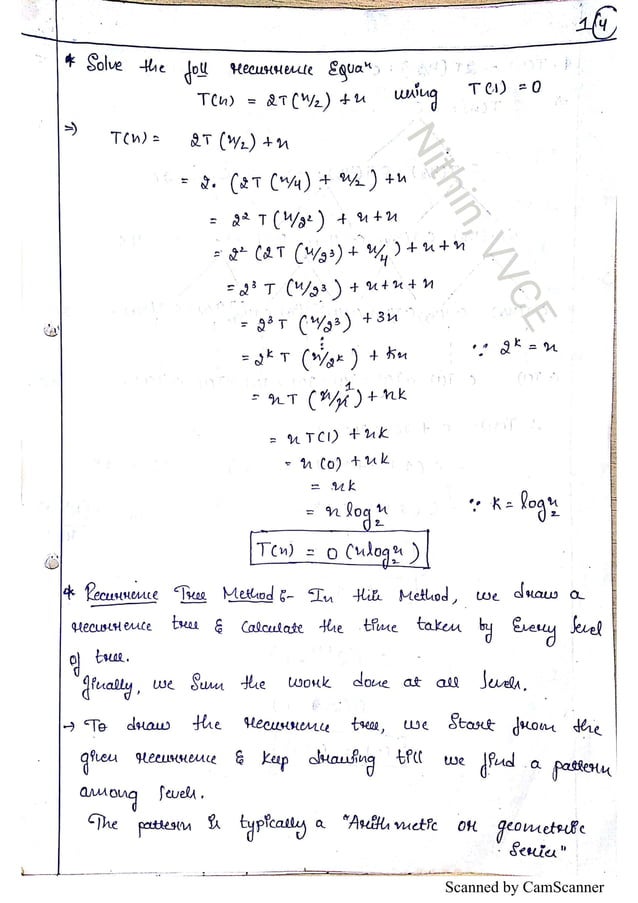 1 4
* Solve the foll recurrence Equaⁿ
T(n) = 2T(n/2) + n using T(1) = 0
⇒ T(n) = 2T(n/2) + n
= 2. (2T(n/4) + n/2) + n
= 2² T(n/2²) + n + n
= 2² (2T(n/2³) + n/4) + n + n
= 2³ T(n/2³) + n + n + n
= 2³ T(n/2³) + 3n
⋮
= 2ᵏ T(n/2ᵏ) + kn ∵ 2ᵏ = n
= n T(n/n) 1 + nk
= n T(1) + nk
= n (0) + nk
= nk
= n log₂ⁿ ∵ k = log₂ⁿ
T(n) = O(n log₂ⁿ)
* Recurrence Tree Method :- In this Method, we draw a
recurrence tree & Calculate the time taken by Every level
of tree.
Finally, we Sum the work done at all levels.
→ To draw the recurrence tree, we Start from the
given recurrence & keep drawing till we find a pattern
among levels.
The pattern is typically a "Arithmetic or geometric
series"
Nithin, VVCE
Scanned by CamScanner